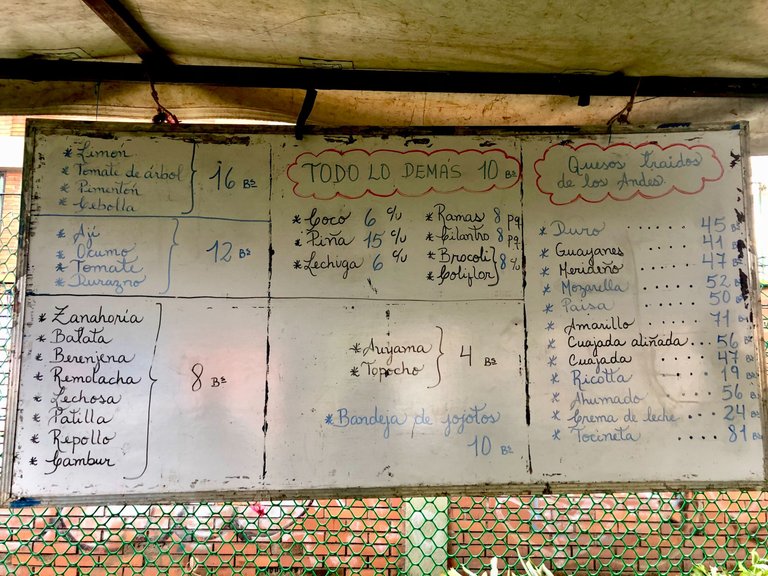 * Limón
* Tomate de árbol
* Pimentón
* Cebolla
16 Bs
* Ají
* Ocumo
* Tomate
* Durazno
12 Bs
* Zanahoria
* Batata
* Berenjena
* Remolacha
* Lechosa
* Patilla
* Repollo
* Cambur
8 Bs
TODO LO DEMÁS 10 Bs
* Coco 6 c/u
* Piña 15 c/u
* Lechuga 6 c/u
* Ramas 8 pq
* Cilantro 8 pq
* Brocoli
* Coliflor
8 %
* Auyama
* Topocho
4 Bs
* Bandeja de jojotos
10 Bs
Quesos traidos
de los Andes.
* Duro ..... 45 Bs
* Guayanes ..... 41 Bs
* Merideño ..... 47 Bs
* Mozarella ..... 52 Bs
* Paisa ..... 50 Bs
* Amarillo ..... 71 Bs
* Cuajada aliñada ... 56 Bs
* Cuajada .... 47 Bs
* Ricotta .... 19 Bs
* Ahumado .... 56 Bs
* Crema de leche .... 24 Bs
* Tocineta .... 81 Bs